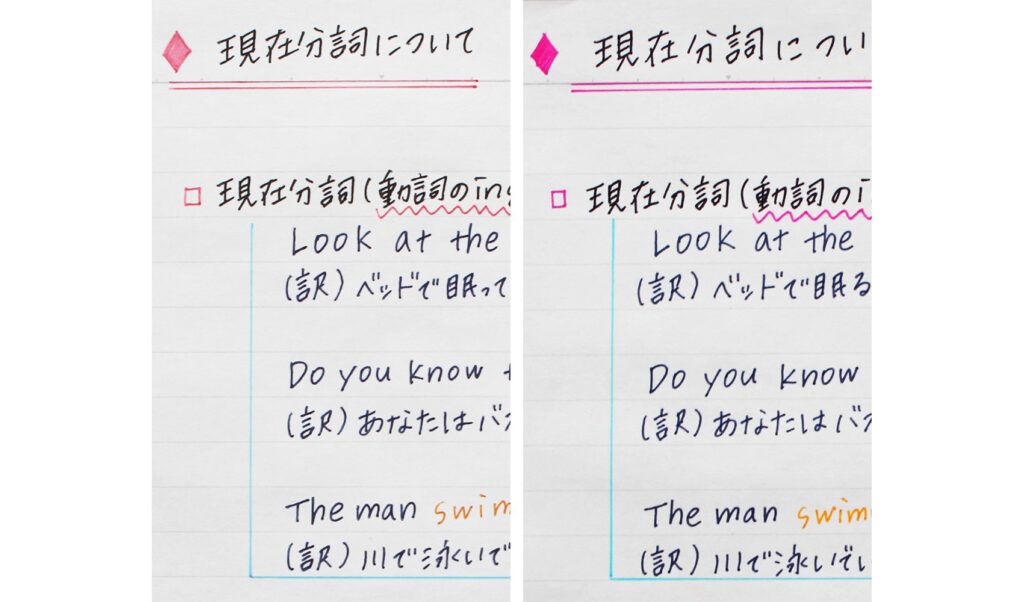 現在分詞について
現在分詞(動詞のing
Look at the
(訳)ベッドで眠って
Do you know
(訳)あなたはバ
The man swim
(訳)川で泳いで
現在分詞につい
現在分詞(動詞のi
Look at the
(訳)ベッドで眠る
Do you know
(訳)あなたはバ
The man swim
(訳)川で泳いでい